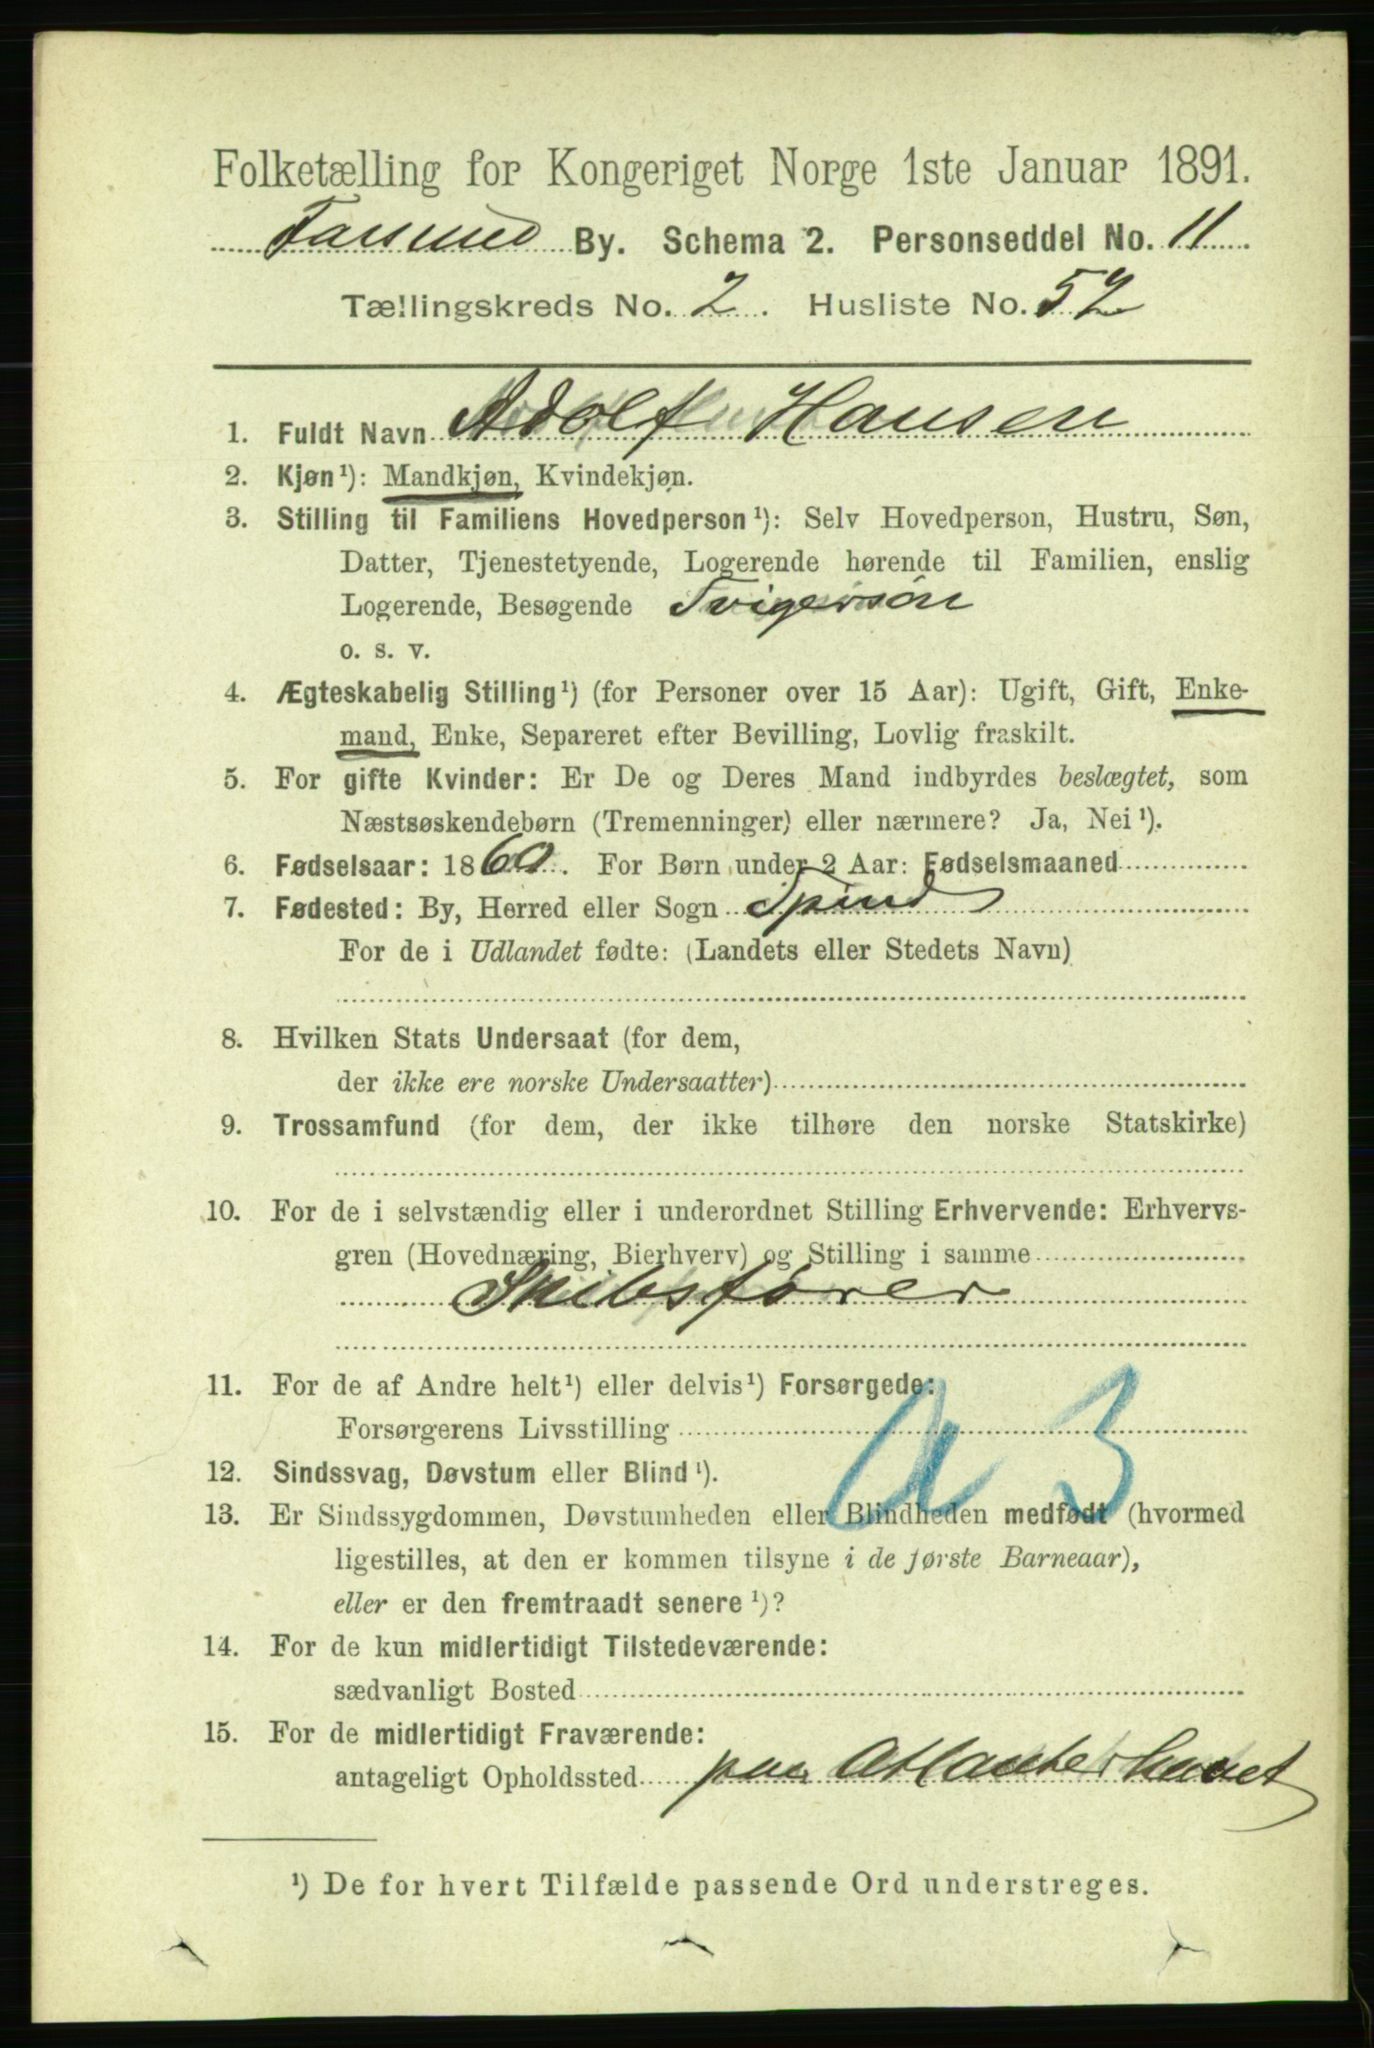 Folketælling for Kongeriget Norge 1ste Januar 1891.
Farsund By. Schema 2. Personseddel No. 11
Tællingskreds No. 2. Husliste No. 52
1. Fuldt Navn Adolf Hansen
2. Kjøn¹): Mandkjøn, Kvindekjøn.
3. Stilling til Familiens Hovedperson¹): Selv Hovedperson, Hustru, Søn,
Datter, Tjenestetyende, Logerende hørende til Familien, enslig
Logerende, Besøgende Svigersøn
o. s. v.
4. Ægteskabelig Stilling¹) (for Personer over 15 Aar): Ugift, Gift, Enke-
mand, Enke, Separeret efter Bevilling, Lovlig fraskilt.
5. For gifte Kvinder: Er De og Deres Mand indbyrdes beslægtet, som
Næstsøskendebørn (Tremenninger) eller nærmere? Ja, Nei¹).
6. Fødselsaar: 1860. For Børn under 2 Aar: Fødselsmaaned
7. Fødested: By, Herred eller Sogn Spind
For de i Udlandet fødte: (Landets eller Stedets Navn)
8. Hvilken Stats Undersaat (for dem,
der ikke ere norske Undersaatter)
9. Trossamfund (for dem, der ikke tilhøre den norske Statskirke)
10. For de i selvstændig eller i underordnet Stilling Erhvervende: Erhvervs-
gren (Hovednæring, Bierhverv) og Stilling i samme
Skibsfører
11. For de af Andre helt¹) eller delvis¹) Forsørgede:
Forsørgerens Livsstilling
a 3
12. Sindssvag, Døvstum eller Blind¹).
13. Er Sindssygdommen, Døvstumheden eller Blindheden medfødt (hvormed
ligestilles, at den er kommen tilsyne i de første Barneaar),
eller er den fremtraadt senere¹)?
14. For de kun midlertidigt Tilstedeværende:
sædvanligt Bosted
15. For de midlertidigt Fraværende:
antageligt Opholdssted paa Atlanterhavet
¹) De for hvert Tilfælde passende Ord understreges.